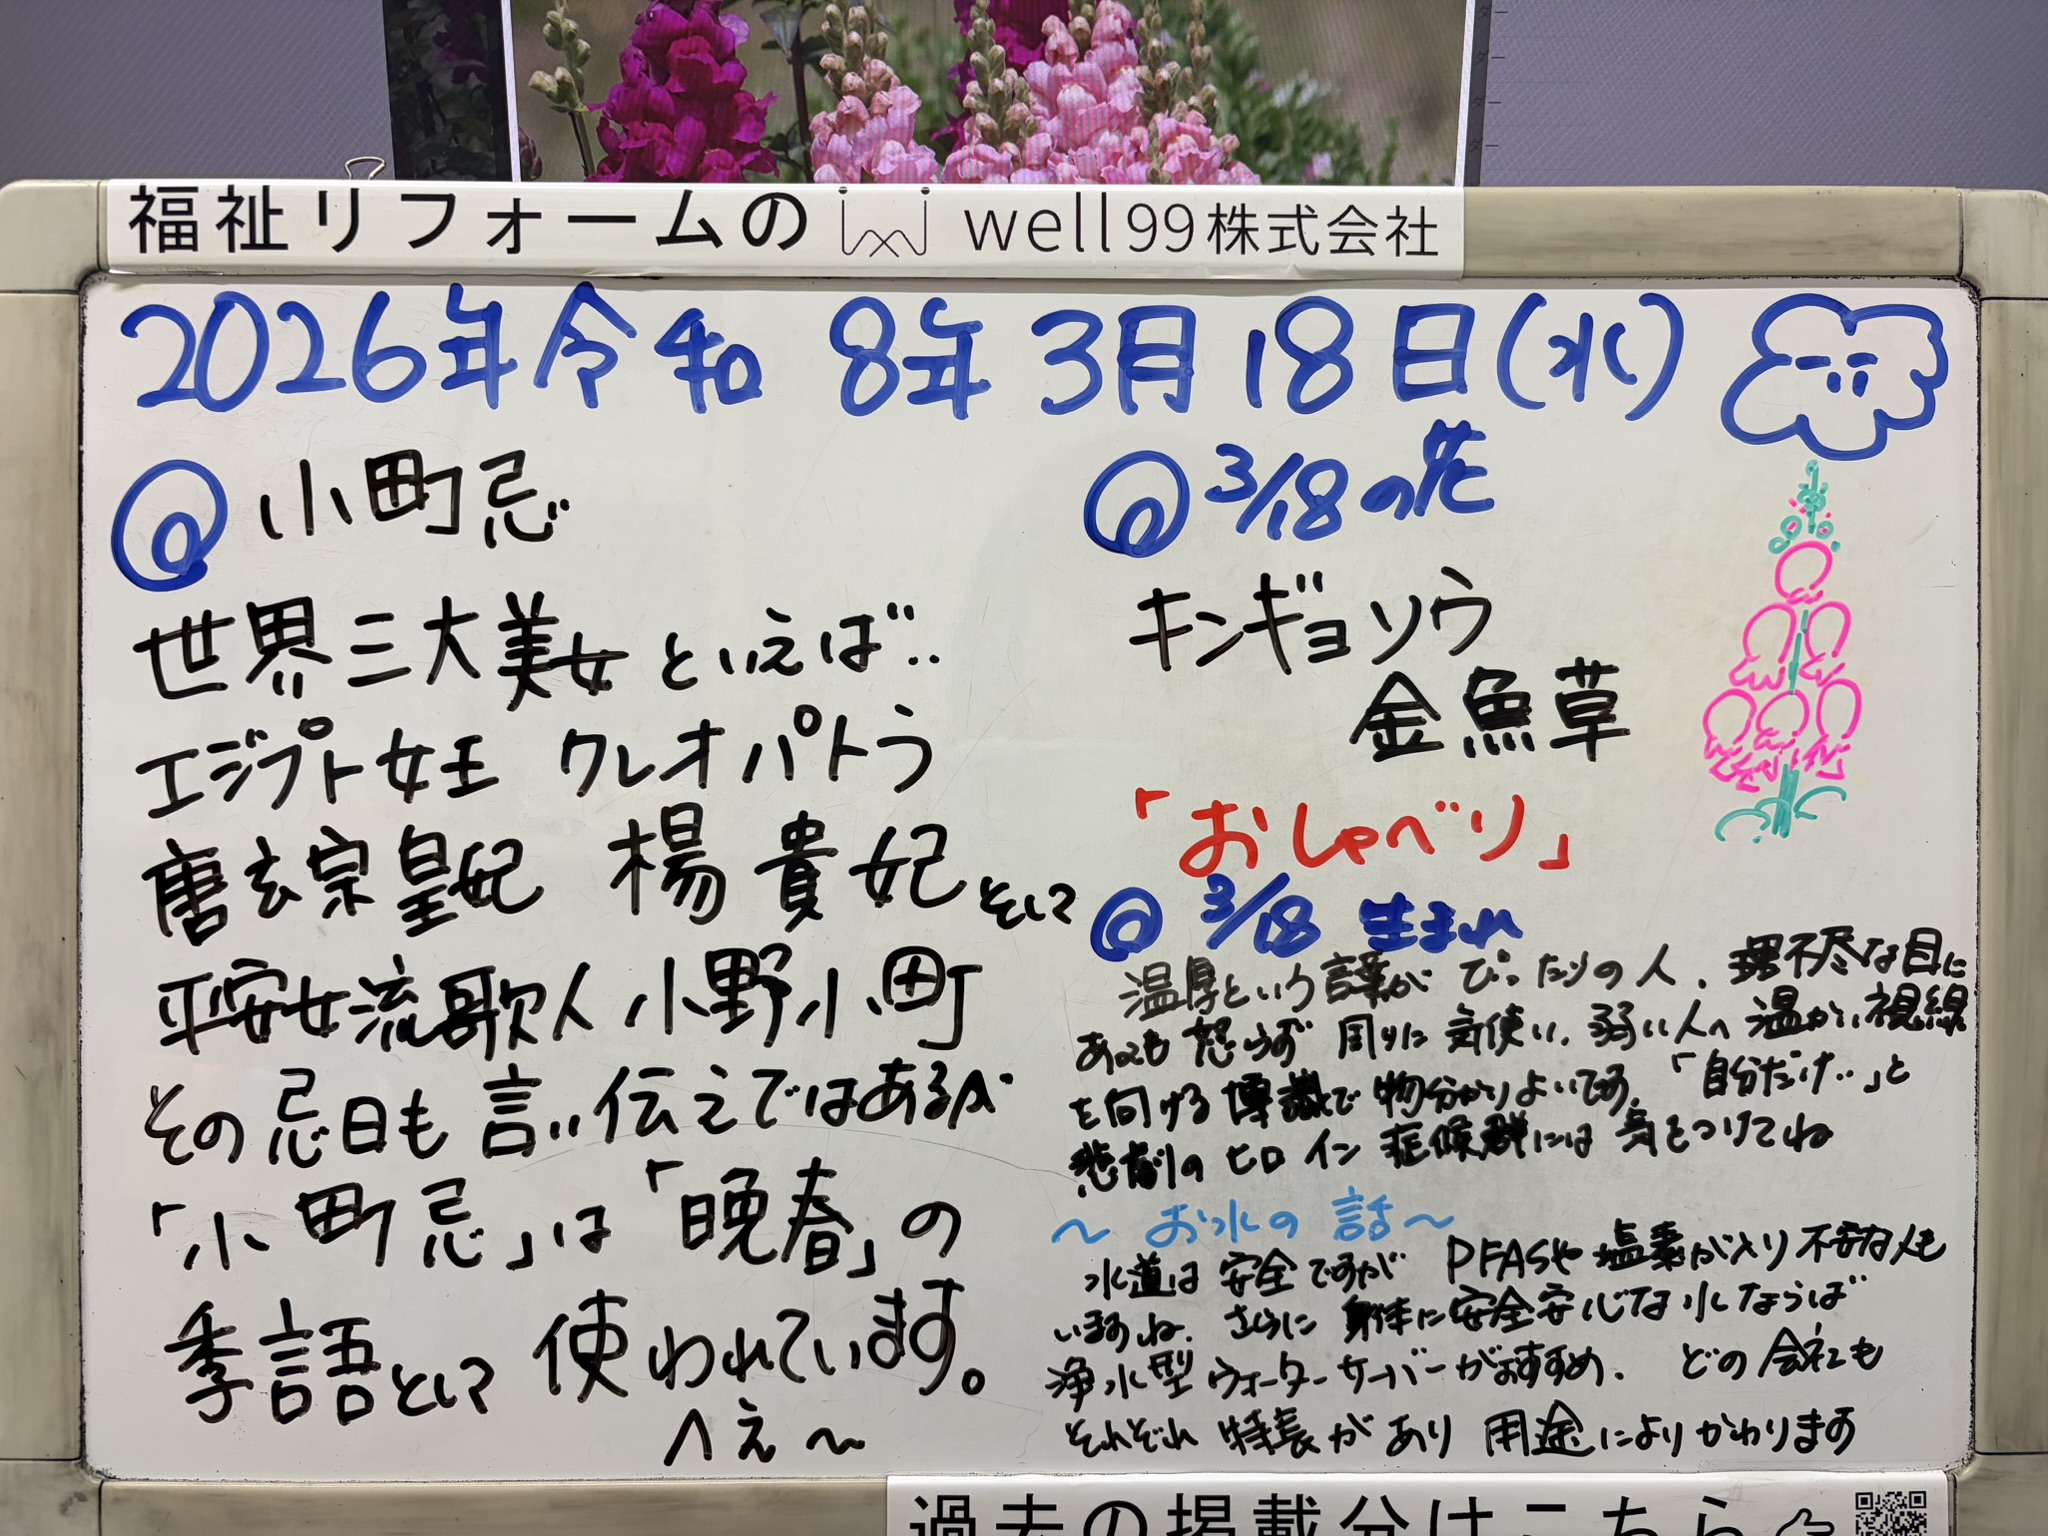 福祉リフォームの well99株式会社
2026年令和8年3月18日(水)
小町忌
世界三大美女といえば‥
エジプト女王 クレオパトラ
唐玄宗皇妃 楊貴妃 そして
平安女流歌人 小野小町
その忌日も言い伝えではあるが
「小町忌」は「晩春」の
季語として使われています。
へぇ〜
3/18の花
キンギョソウ
金魚草
「おしゃべり」
3/18 生まれ
温厚という言葉がぴったりの人、理不尽な目に
あっても怒らず周りに気使い、弱い人へ温かい視線
を向ける博識で物分かりよいです。「自分だけ‥」と
悲劇のヒロイン症候群には気をつけてね
〜お水の話〜
水道は安全ですが PFASや塩素が入り不安な人も
いますね、さらに身体に安全安心な水ならば
浄水型ウォーターサーバーがおすすめ、どの会社も
それぞれ特長があり用途によりかわります
過去の掲載分はこちら